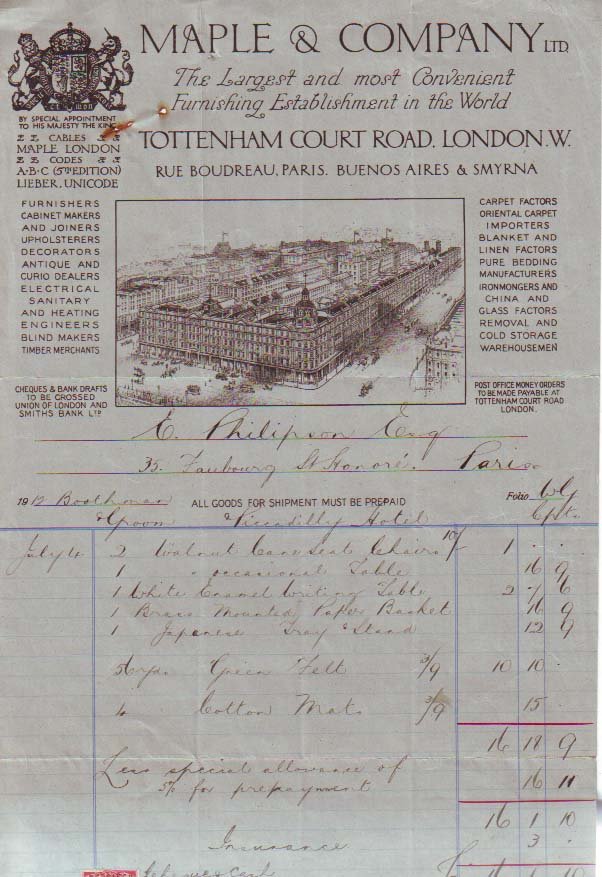 MAPLE & COMPANY LTD
The Largest and most Convenient
Furnishing Establishment in the World
BY SPECIAL APPOINTMENT
TO HIS MAJESTY THE KING
CABLES
MAPLE LONDON
CODES
A·B·C (5TH EDITION)
LIEBER, UNICODE
TOTTENHAM COURT ROAD. LONDON.W.
RUE BOUDREAU, PARIS. BUENOS AIRES & SMYRNA
FURNISHERS
CABINET MAKERS
AND JOINERS
UPHOLSTERERS
DECORATORS
ANTIQUE AND
CURIO DEALERS
ELECTRICAL
SANITARY
AND HEATING
ENGINEERS
BLIND MAKERS
TIMBER MERCHANTS
CARPET FACTORS
ORIENTAL CARPET
IMPORTERS
BLANKET AND
LINEN FACTORS
PURE BEDDING
MANUFACTURERS
IRONMONGERS AND
CHINA AND
GLASS FACTORS
REMOVAL AND
COLD STORAGE
WAREHOUSEMEN
CHEQUES & BANK DRAFTS
TO BE CROSSED
UNION OF LONDON AND
SMITHS BANK LTD
POST OFFICE MONEY ORDERS
TO BE MADE PAYABLE AT
TOTTENHAM COURT ROAD
LONDON.
E. Philipson Esq
35. Faubourg St Honoré. Paris.
1912 Boothman ALL GOODS FOR SHIPMENT MUST BE PREPAID Folio
& Groom Piccadilly Hotel
July 4 2 Walnut Cane Seat Chairs 10/ 1 . .
1 " occasional Table 16 9
1 White Enamel Writing Table 2 7 6
1 Brass Mounted Paper Basket 16 9
1 Japanese Tray & Stand 12 9
56 yds Green Felt 3/9 10 10 .
4 Cotton Mats 3/9 15 .
16 18 9
Less special allowance of
5% for prepayment 16 11
16 1 10
Insurance 3 .